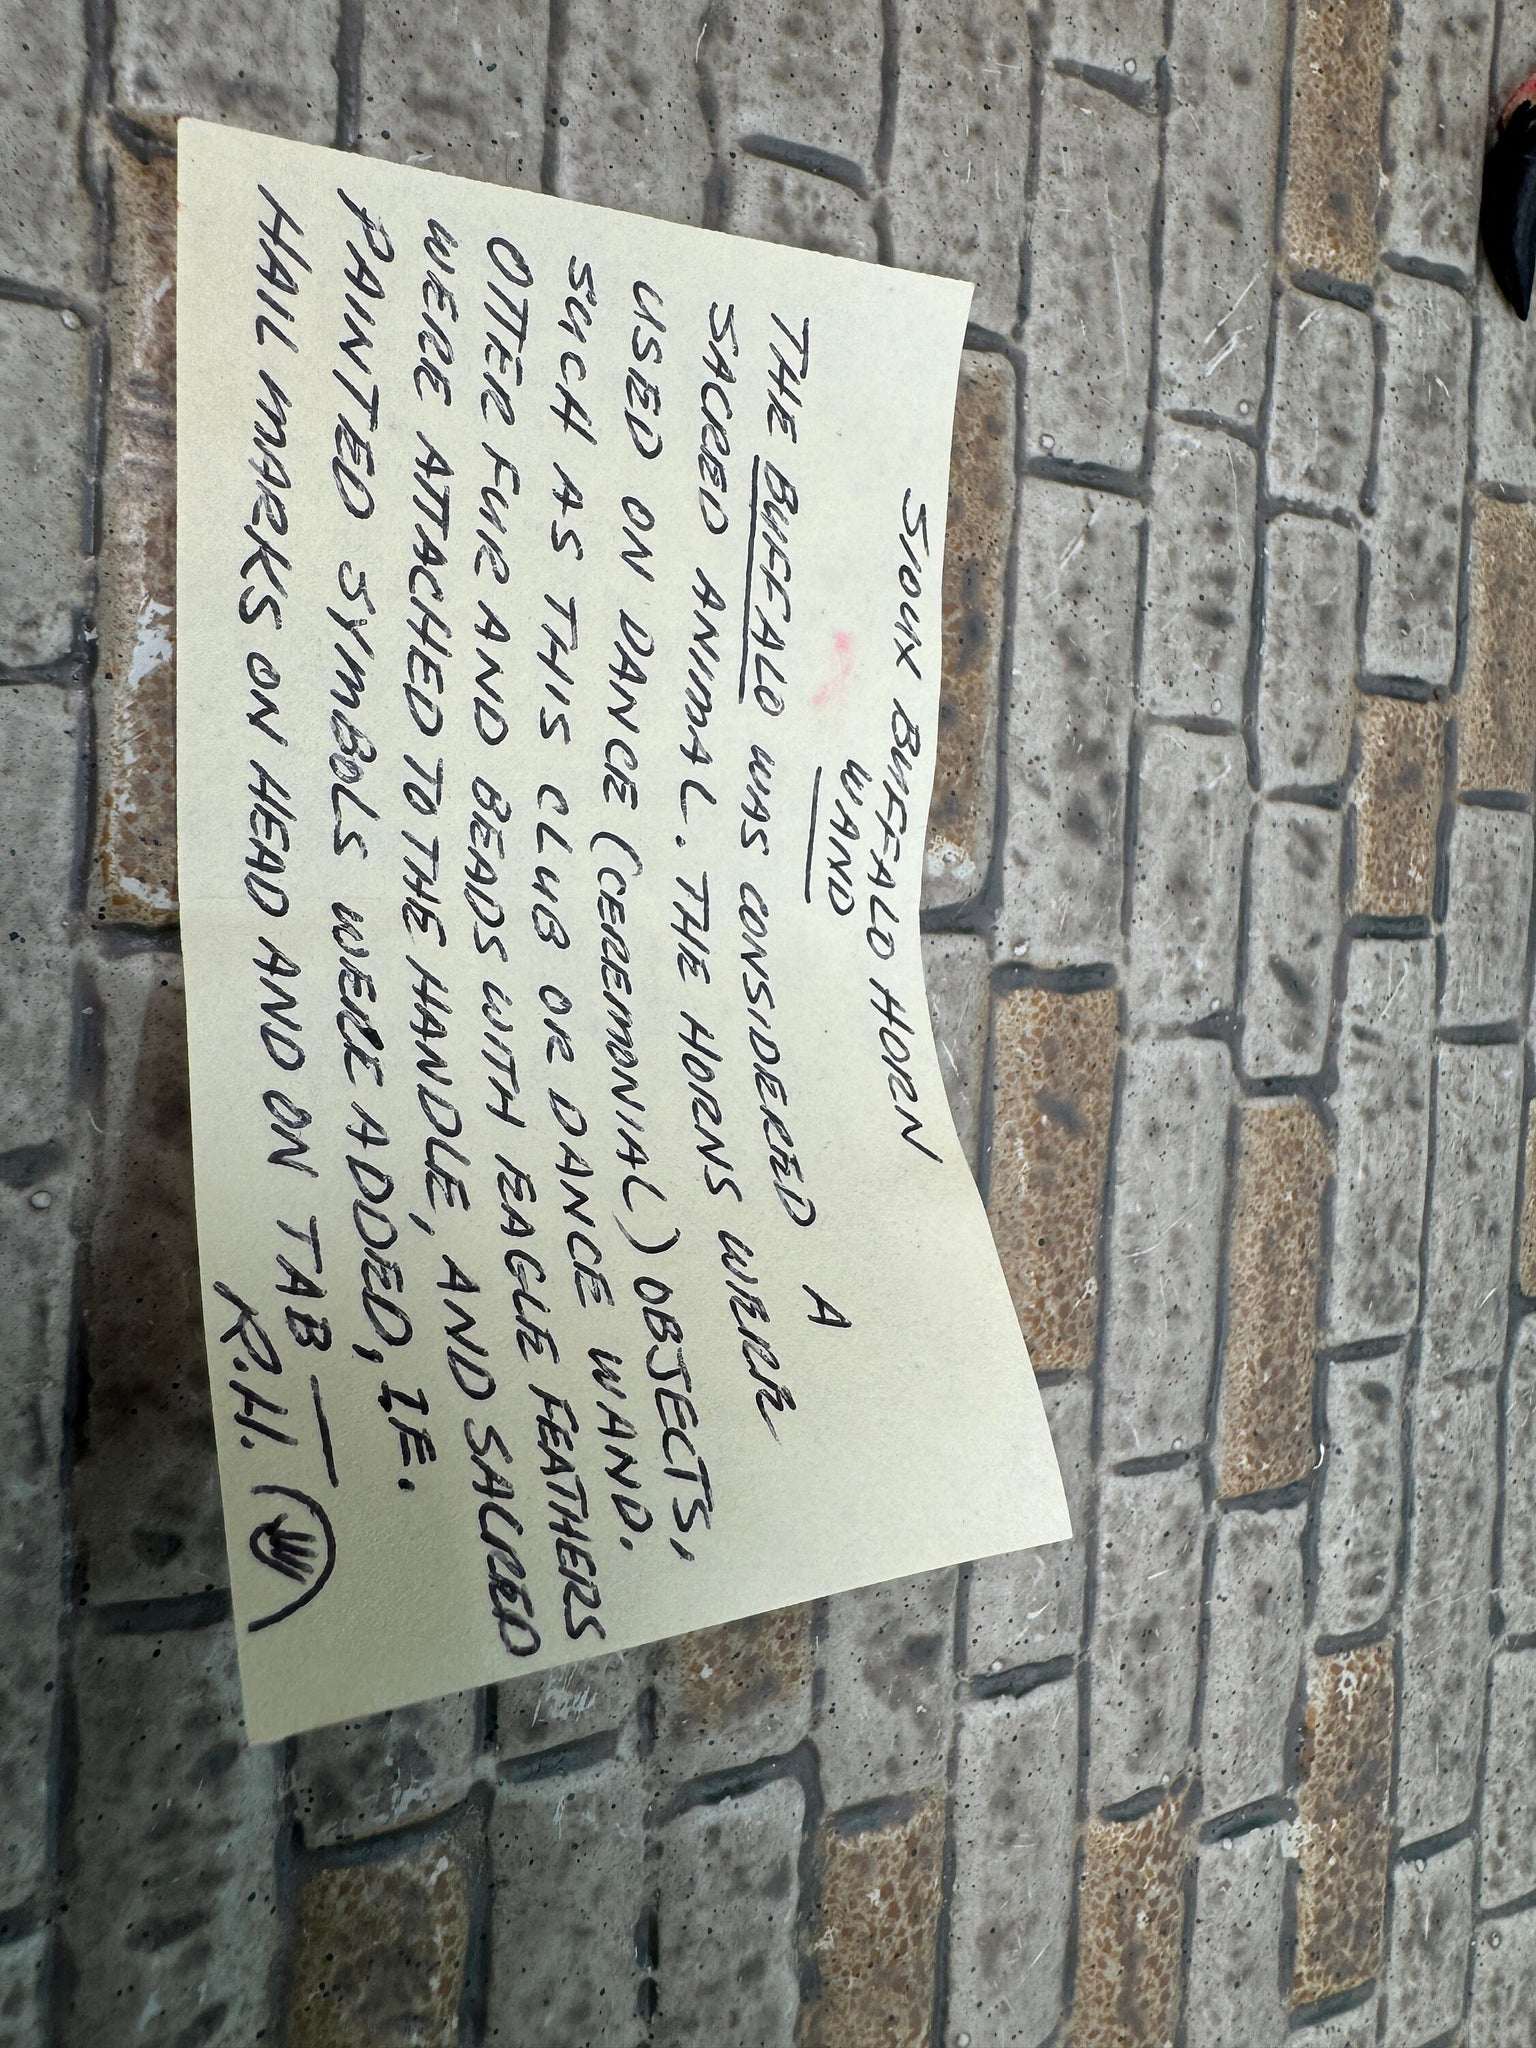 SIOUX BUFFALO HORN
WAND
THE BUFFALO WAS CONSIDERED A
SACRED ANIMAL. THE HORNS WERE
USED ON DANCE (CEREMONIAL) OBJECTS,
SUCH AS THIS CLUB OR DANCE WAND.
OTTER FUR AND BEADS WITH EAGLE FEATHERS
WERE ATTACHED TO THE HANDLE, AND SACRED
PAINTED SYMBOLS WERE ADDED, IE.
HAIL MARKS ON HEAD AND ON TAB —
R.H.